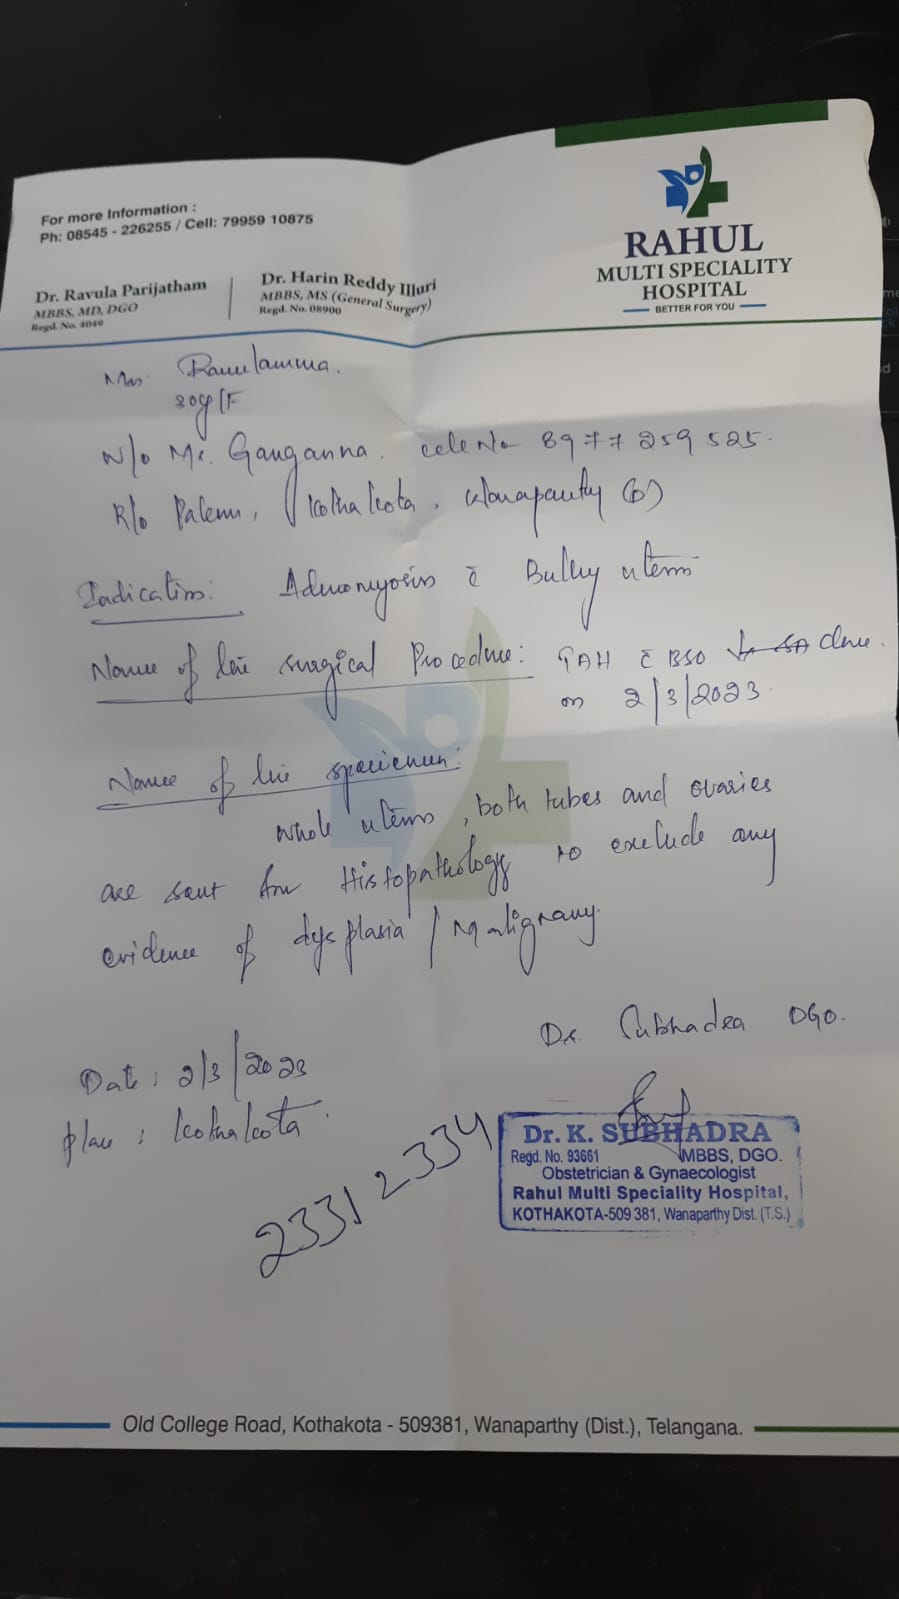 For more Information :
Ph: 08545 - 226255 / Cell: 79959 10875
Dr. Ravula Parijatham
MBBS, MD, DGO
Regd. No. 4049
Dr. Harin Reddy Illuri
MBBS, MS (General Surgery)
Regd. No. 08900
RAHUL
MULTI SPECIALITY
HOSPITAL
BETTER FOR YOU
Mrs. Ramulamma.
30y/F
W/o Mr. Ganganna. cell No 8977259525.
R/o Palem, Kothakota, Wanaparthy (D)
Indication: Adenomyosis c̄ Bulky uterus
Name of the surgical Procedure: TAH c̄ BSO done.
on 2/3/2023.
Name of the specimen:
Whole uterus, both tubes and ovaries
are sent for Histopathology to exclude any
evidence of dysplasia / Malignany.
Dr. Subhadra DGO.
Date : 2/3/2023
place : Kothakota.
2331 2334
Dr. K. SUBHADRA
Regd. No. 93661 MBBS, DGO.
Obstetrician & Gynaecologist
Rahul Multi Speciality Hospital,
KOTHAKOTA-509 381, Wanaparthy Dist. (T.S.)
Old College Road, Kothakota - 509381, Wanaparthy (Dist.), Telangana.